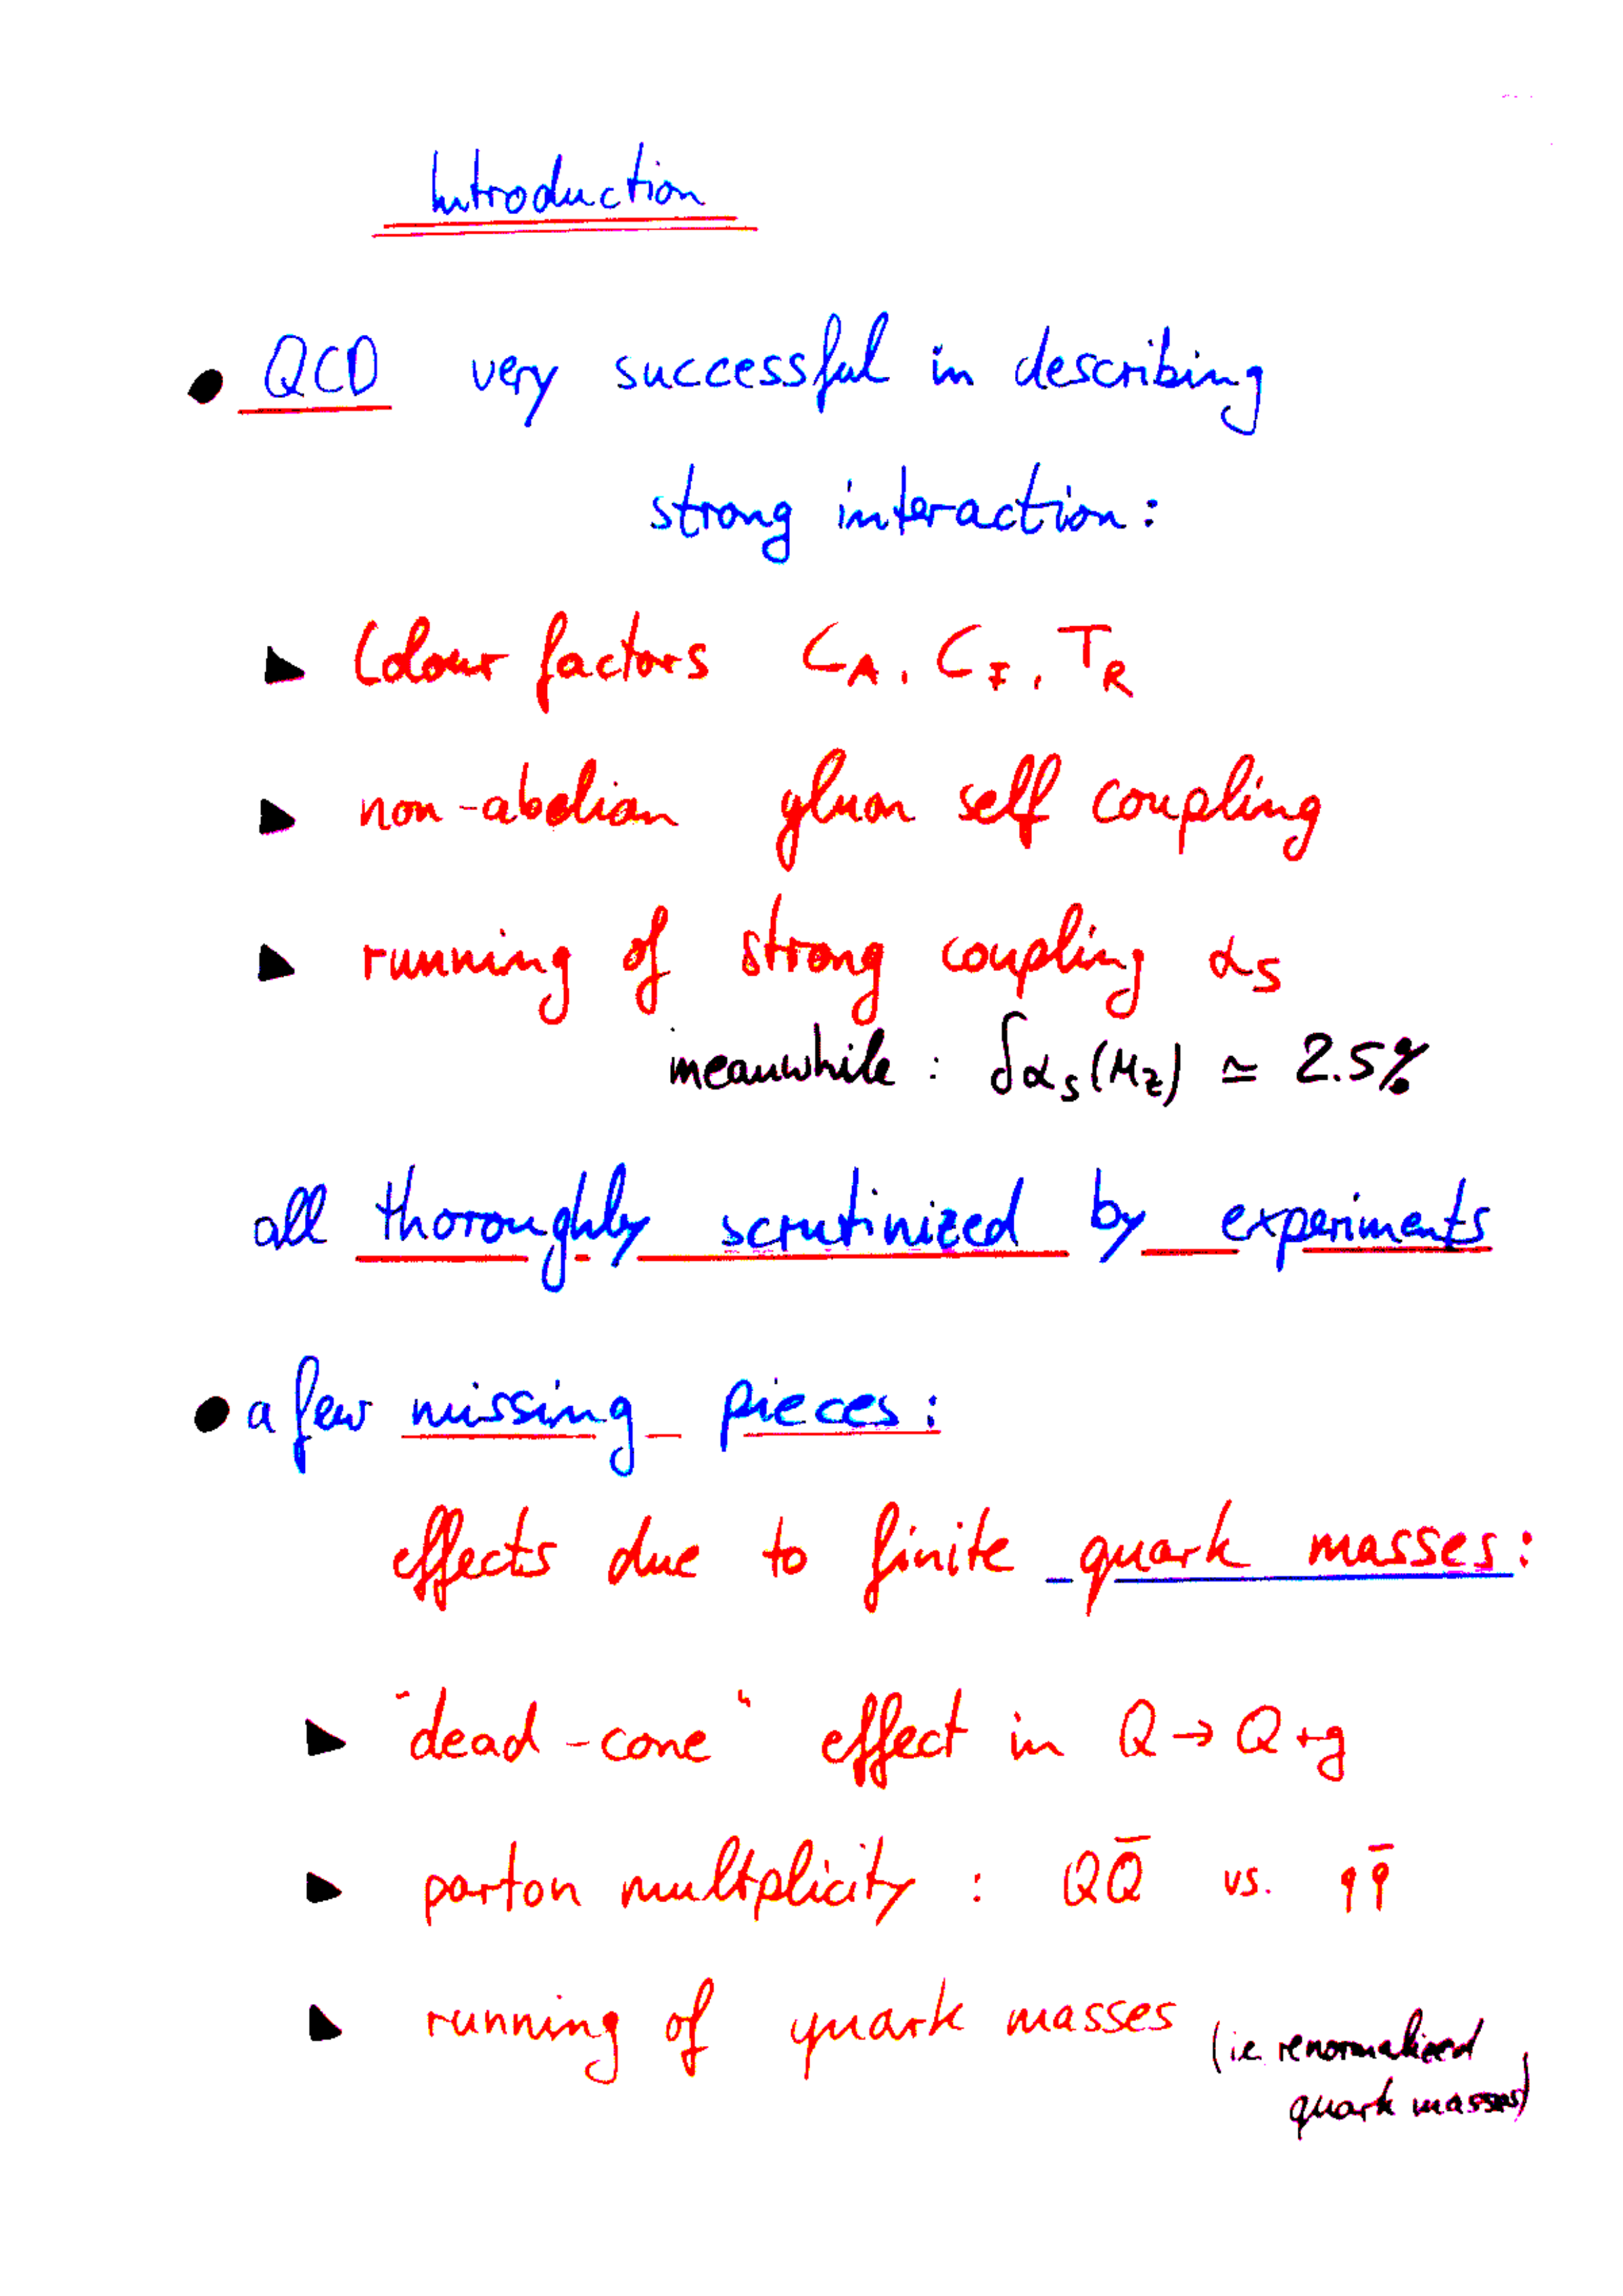 Introduction
• QCD very successful in describing
strong interaction:
▶ Colour factors C_A, C_F, T_R
▶ non-abelian gluon self coupling
▶ running of strong coupling α_S
meanwhile : δα_S(M_Z) ≃ 2.5%
all thoroughly scrutinized by experiments
• a few missing pieces:
effects due to finite quark masses:
▶ "dead-cone" effect in Q → Q+g
▶ parton multiplicity : QQ̄ vs. qq̄
▶ running of quark masses
(ie. renormalized
quark masses)